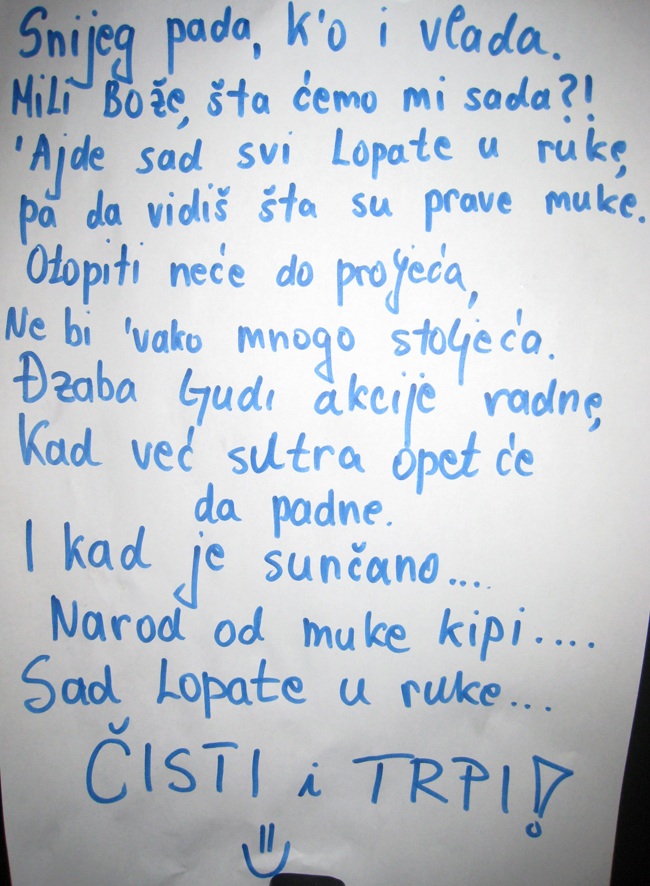 Snijeg pada, k'o i vlada.
Mili Bože, šta ćemo mi sada?!
'Ajde sad svi Lopate u ruke,
pa da vidiš šta su prave muke.
Otopiti neće do proljeća,
Ne bi 'vako mnogo stoljeća.
Džaba ljudi akcije radne,
Kad već sutra opet će
da padne.
I kad je sunčano....
Narod od muke kipi....
Sad Lopate u ruke...
ČISTI i TRPI!